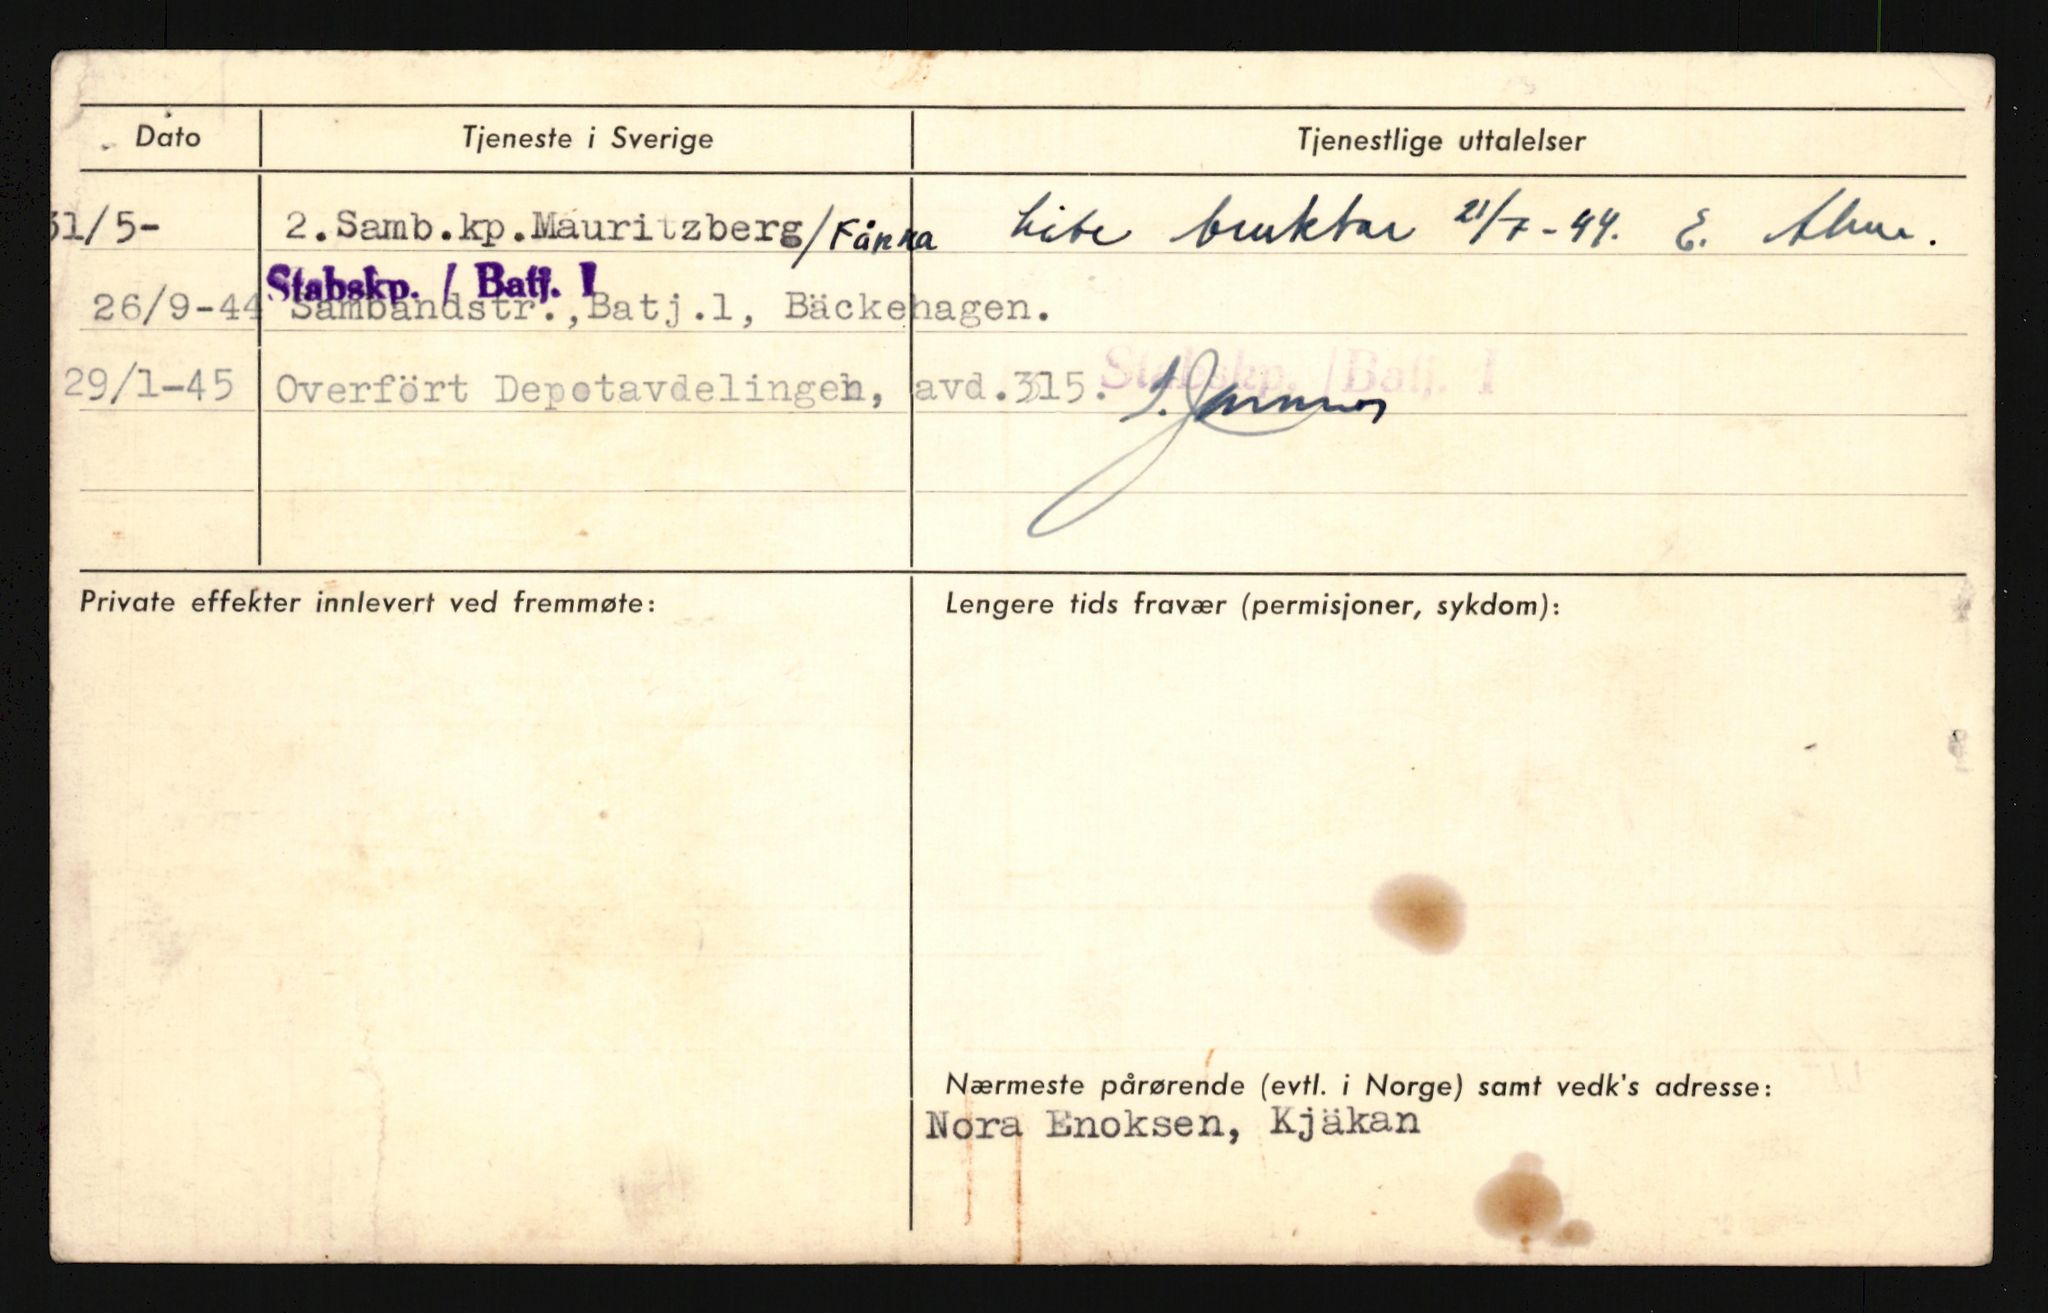 Dato Tjeneste i Sverige Tjenestlige uttalelser
31/5- 2.Samb.kp.Mauritzberg/Fånna Lite bruktar 21/7-44. E.
Stabskp. / Batj. I
26/9-44 Sambandstr.,Batj.1, Bäckehagen.
Stabskp. / Batj. I
29/1-45 Overfört Depotavdelingen, avd.315.
Private effekter innlevert ved fremmøte: Lengere tids fravær (permisjoner, sykdom):
Nærmeste pårørende (evtl. i Norge) samt vedk's adresse:
Nora Enoksen, Kjäkan